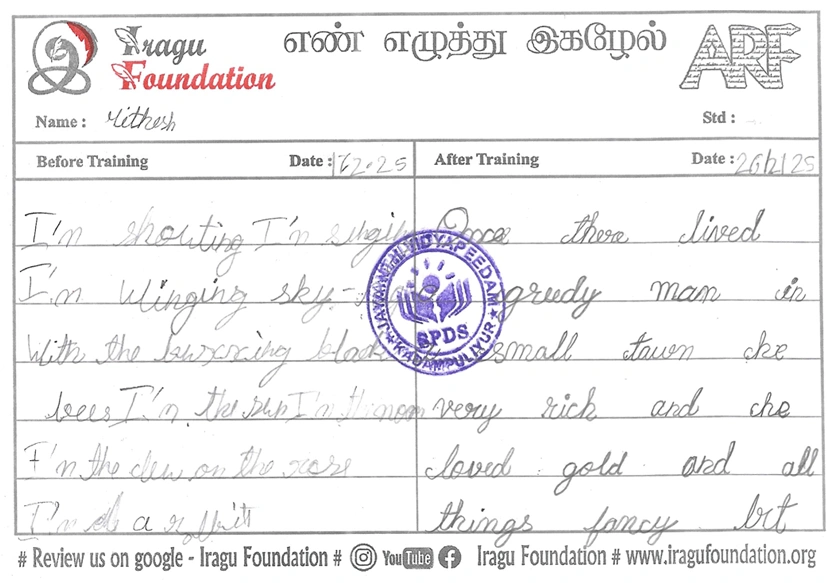 Iragu Foundation
எண் எழுத்து இகழேல்
ARF
Name : Rithesh
Std :
Before Training Date : 12.25
After Training Date : 26/12/25
I'm shouting I'm singing
I'm winging sky-
With the buzzing black
bees I'm the sun I'm the moon
I'm the dew on the rose
I'm a rabbit
Once there lived
greedy man in
small town
very rick and
loved gold and all
things fancy bt
JAYAMANTHI VIDYAPEEDAM
SPDS
KADAMPULIYUR
# Review us on google - Iragu Foundation # YouTube Iragu Foundation # www.iragufoundation.org